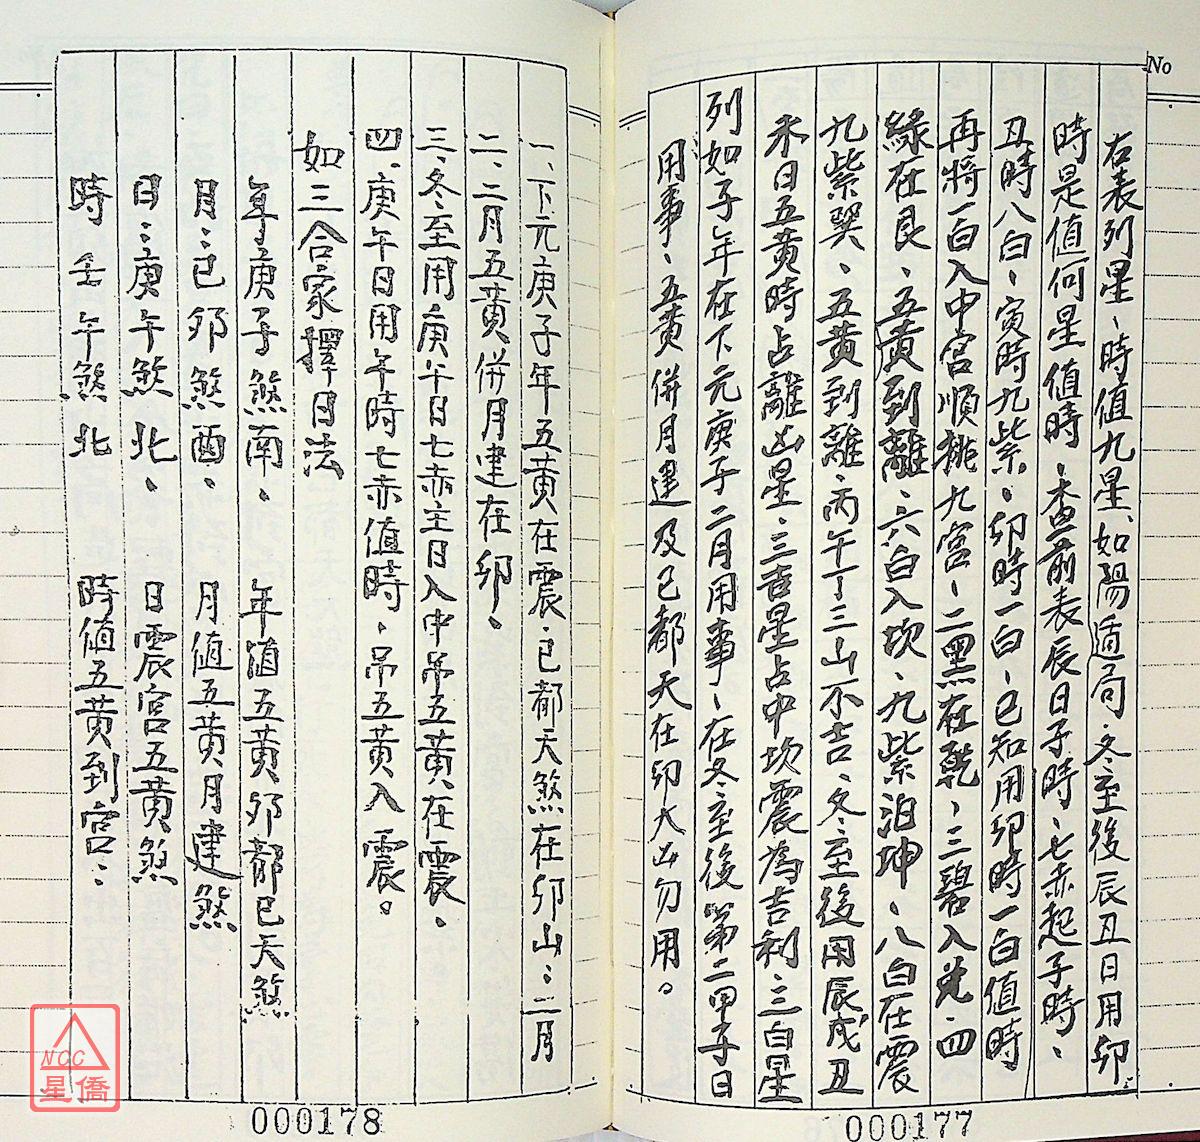 No
右表列星、時值九星、如陽遁局、冬至後辰丑日用卯
時是值何星值時、查前表辰日子時、七赤起子時、
丑時八白、寅時九紫、卯時一白、已知用卯時一白值時
再將一白入中宮順挑九宮、二黑在乾、三碧入兌、四
綠在艮、五黃到離、六白入坎、九紫泊坤、八白在震
九紫巽、五黃到離、丙午丁三山不吉、冬至後用辰戌丑
未日五黃時占離凶星、三吉星占中坎震為吉利、三白星
列如子年在下元庚子二月用事、在冬至後第二甲子日
用事、五黃併月建及己都天在卯大凶勿用。
000177
一、下元庚子年五黃在震、己都天煞在卯山、二月
二、二月五黃併月建在卯、
三、冬至用庚午日七赤主日入中吊五黃在震、
四、庚午日用午時七赤值時、吊五黃入震。
如三合家擇日法
年、庚子煞南、 年值五黃卯都己天煞
月、己卯煞酉、 月值五黃月建煞
日、庚午煞北、 日震宮五黃煞
時 壬午煞北 時值五黃到宮、
000178
NCC
星僑